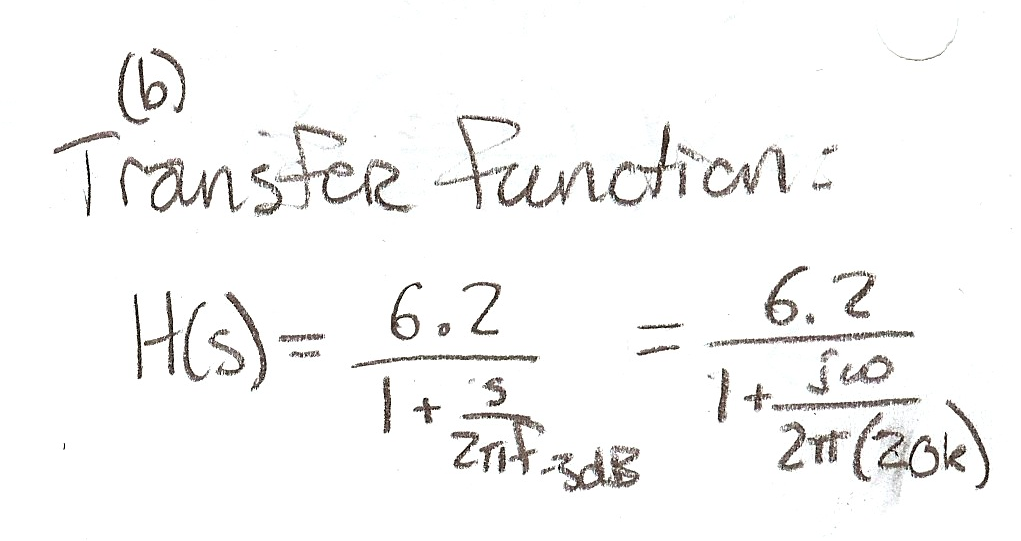 (b)
Transfer function:
H(s) = 6.2 / (1 + s / (2πf-3dB)) = 6.2 / (1 + jω / (2π(20k)))